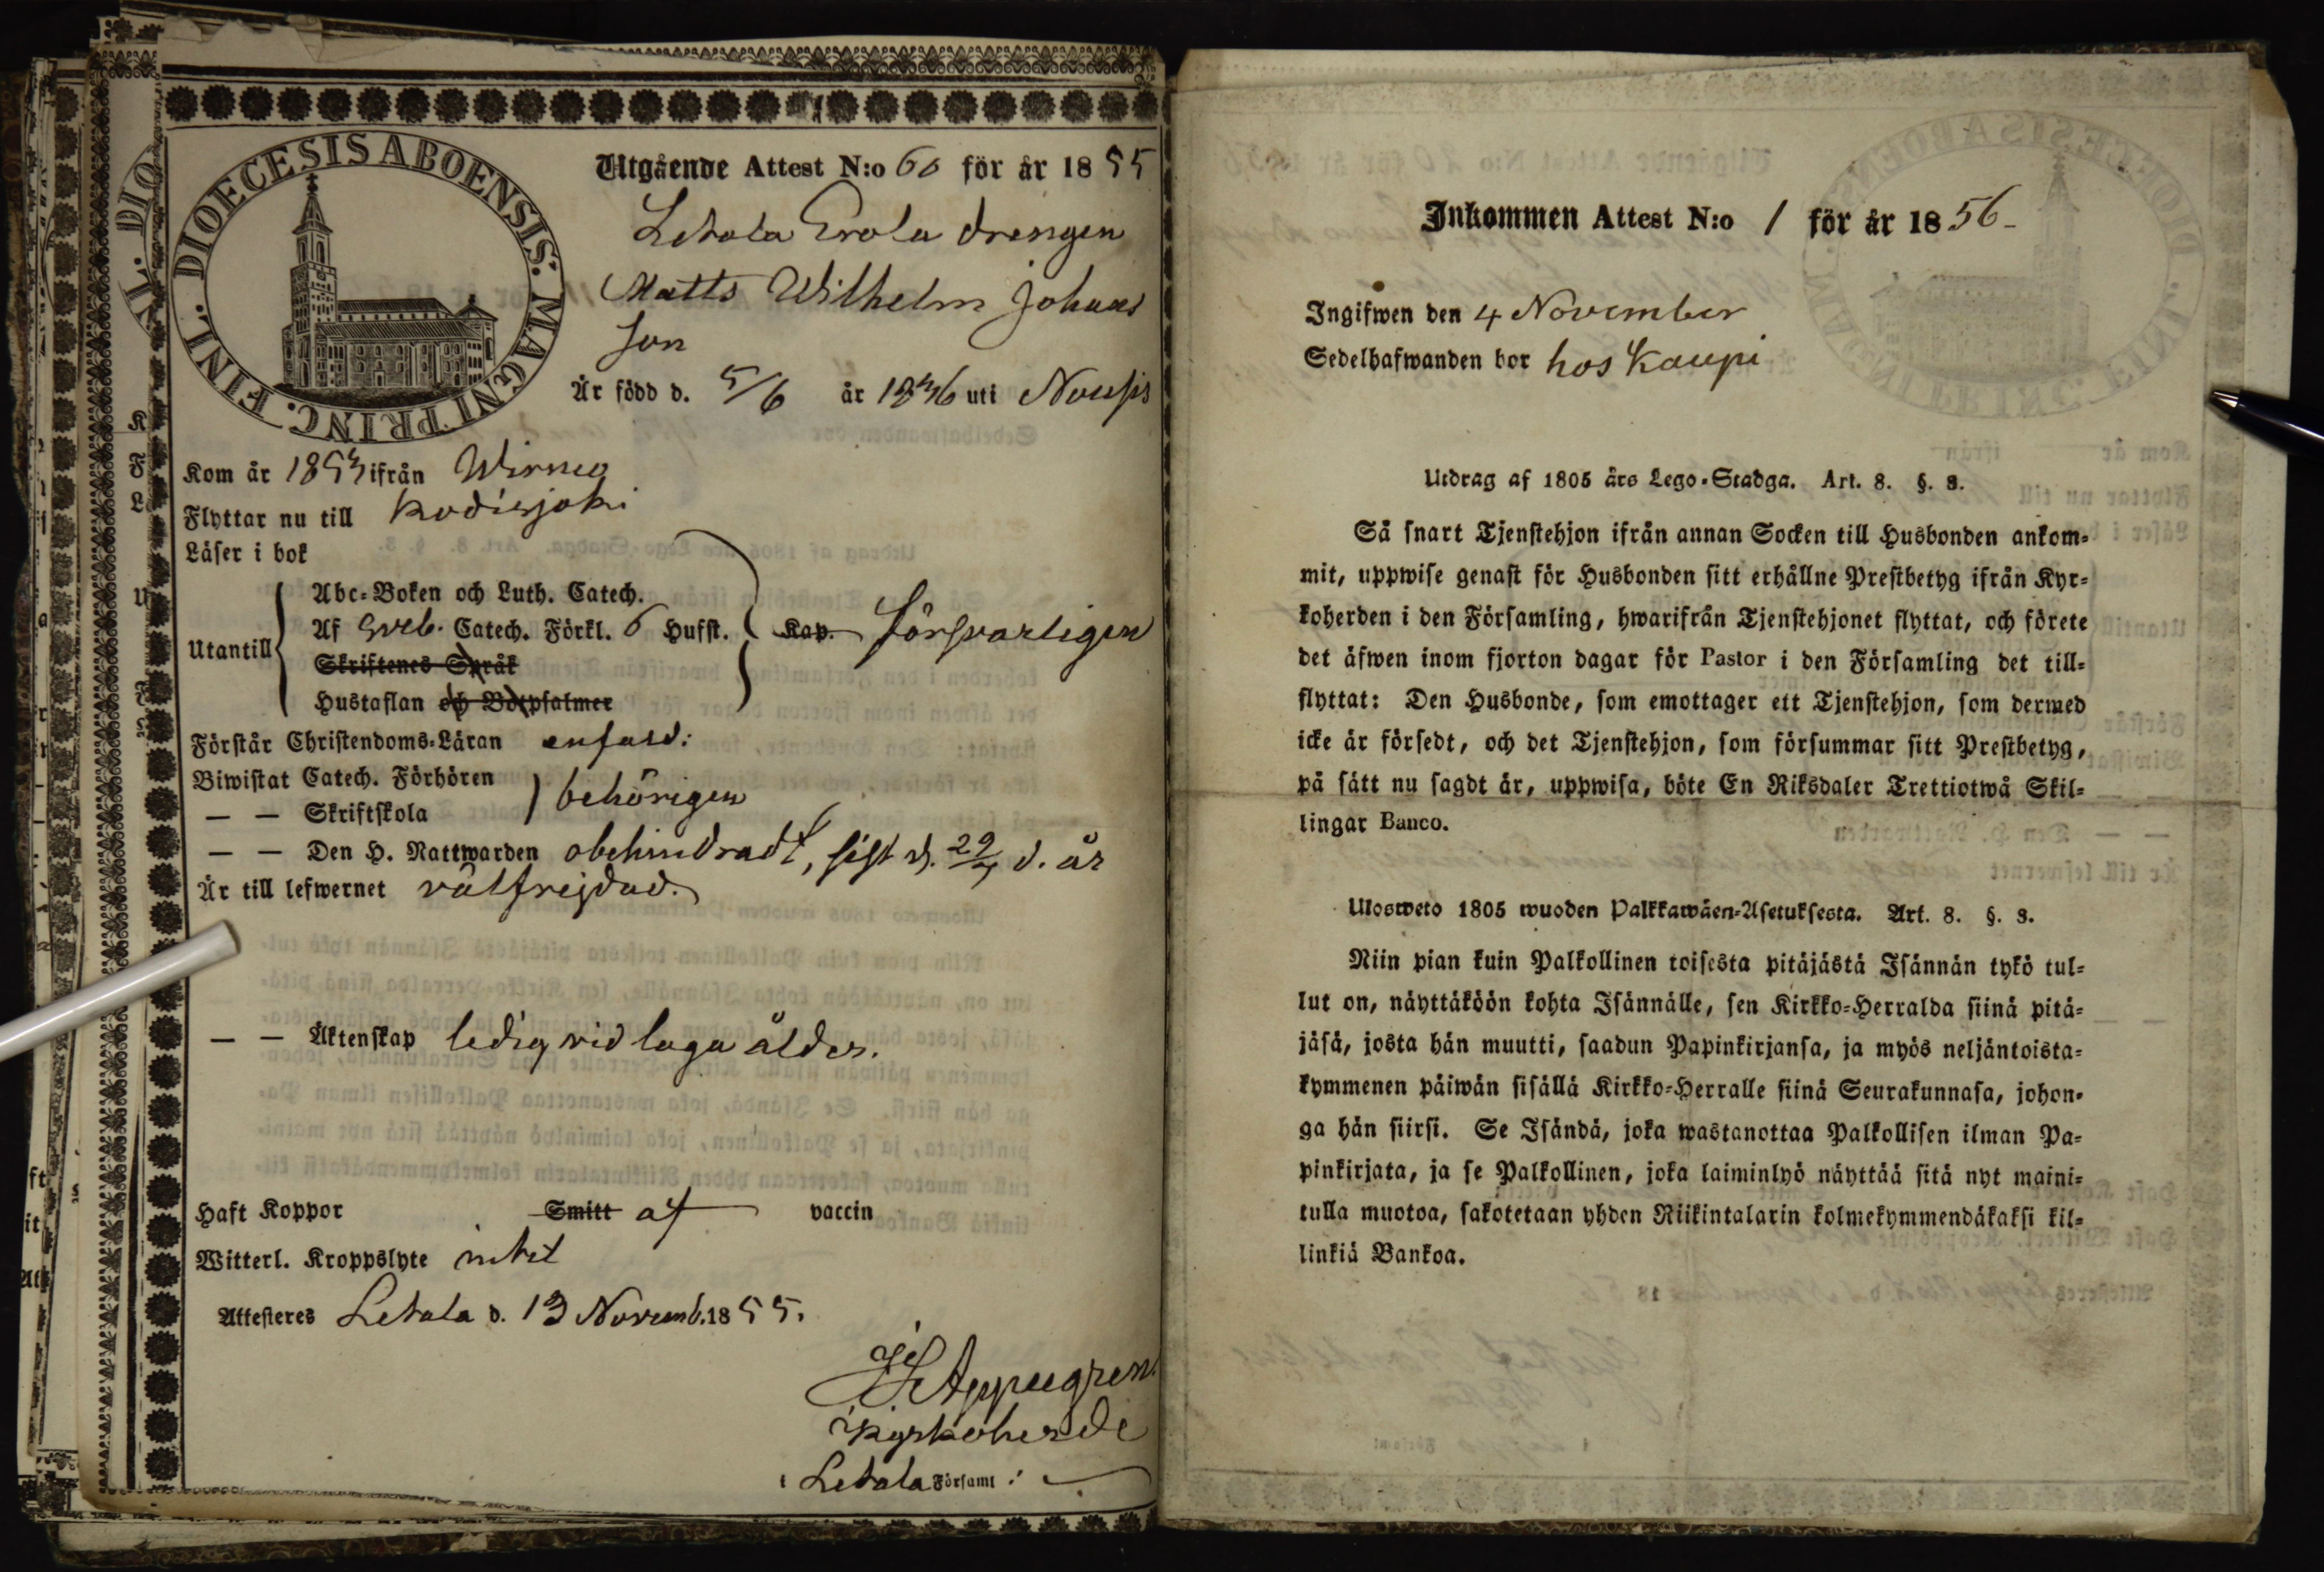 FINL. DIOECESIS ABOENSIS. MAGNI PRINC.
Utgående Attest N:o 60 för år 1855
Letala Erola drengen
Matts Wilhelm Johans
son
Är född d. 5/6 år 1836 uti Nousis
Kom år 1853 ifrån Wirmo
Flyttar nu till Kodisjoki
Läser i bok
Utantill
Abc-Boken och Luth. Catech.
Af Sveb. Catech. Förkl. 6 Hufst. Kap. försvarligen
Skriftenes Språk
Hustaflan och Botpsalmer
Förstår Christendoms-Läran enfald:
Biwistat Catech. Förhören
— — Skriftskola behörigen
— — Den H. Nattwarden obehindradt, sist d. 29/7 d. år
Är till lefwernet välfrejdad.
— — Äktenskap ledig vid laga ålder.
Haft Koppor Smitt af vaccin
Witterl. Kroppslyte intet
Attesteres Letala d. 13 Novemb. 1855.
Kyrkoherde
i Letala Församl:
Inkommen Attest N:o 1 för år 1856
Ingifwen den 4 November
Sedelhafwanden bor hos Kaupi
Utdrag af 1805 års Lego-Stadga. Art. 8. §. 3.
Så snart Tjenstehjon ifrån annan Socken till Husbonden ankom-
mit, uppwise genast för Husbonden sitt erhållne Prestbetyg ifrån Kyr-
koherden i den Församling, hwarifrån Tjenstehjonet flyttat, och förete
det äfwen inom fjorton dagar för Pastor i den Församling det till-
flyttat: Den Husbonde, som emottager ett Tjenstehjon, som dermed
icke är försedt, och det Tjenstehjon, som försummar sitt Prestbetyg,
på sätt nu sagdt är, uppwisa, böte En Riksdaler Trettiotwå Skil-
lingar Banco.
Ulosweto 1805 wuoden Palkkawäen-Asetuksesta. Art. 8. §. 3.
Niin pian kuin Palkollinen toisesta pitäjästä Isännän tykö tul-
lut on, näyttäköön kohta Isännälle, sen Kirkko-Herralda siinä pitä-
jäsä, josta hän muutti, saadun Papinkirjansa, ja myös neljäntoista-
kymmenen päiwän sisällä Kirkko-Herralle siinä Seurakunnasa, johon-
ga hän siirsi. Se Isändä, joka wastanottaa Palkollisen ilman Pa-
pinkirjata, ja se Palkollinen, joka laiminlyö näyttää sitä nyt maini-
tulla muotoa, sakotetaan yhden Riikintalarin kolmekymmendäkaksi kil-
linkiä Bankoa.